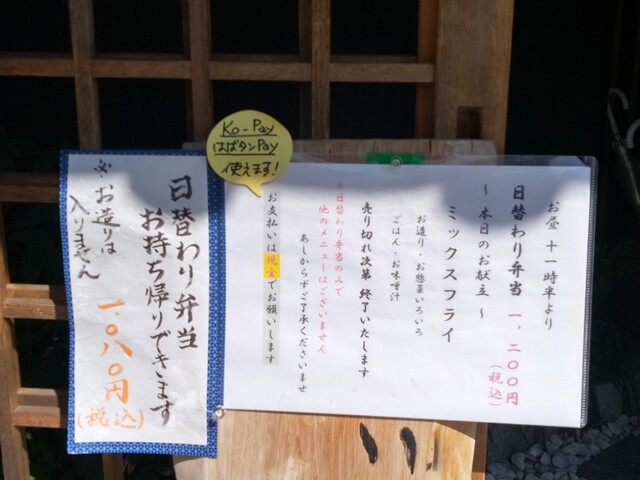 Ko-Pay
はばタンPay
使えます!
お昼 十一時半より
日替わり弁当 一、二〇〇円
(税込)
~ 本日のお献立 ~
ミックスフライ
お造り・お惣菜いろいろ
ごはん・お味噌汁
売り切れ次第 終了いたします
※日替わり弁当のみで
他のメニューはございません
あしからずご了承くださいませ
お支払いは現金でお願いします
日替わり弁当
お持ち帰りできます
※お造りは
入りません
一、〇八〇円
(税込)